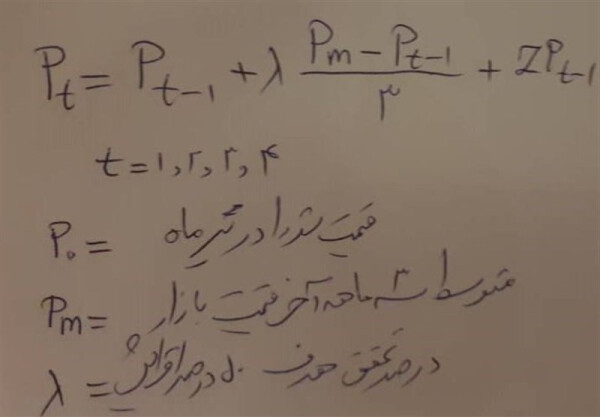 Pt = Pt-1 + λ (Pm - Pt-1)/۳ + ZPt-1
t = ۱, ۲, ۳, ۴
P۰ = قیمت شورا در تیر ماه
Pm = متوسط ۳ ماهه آخر قیمت بازار
λ = درصد تحقق هدف ۵۰ درصد افزایش